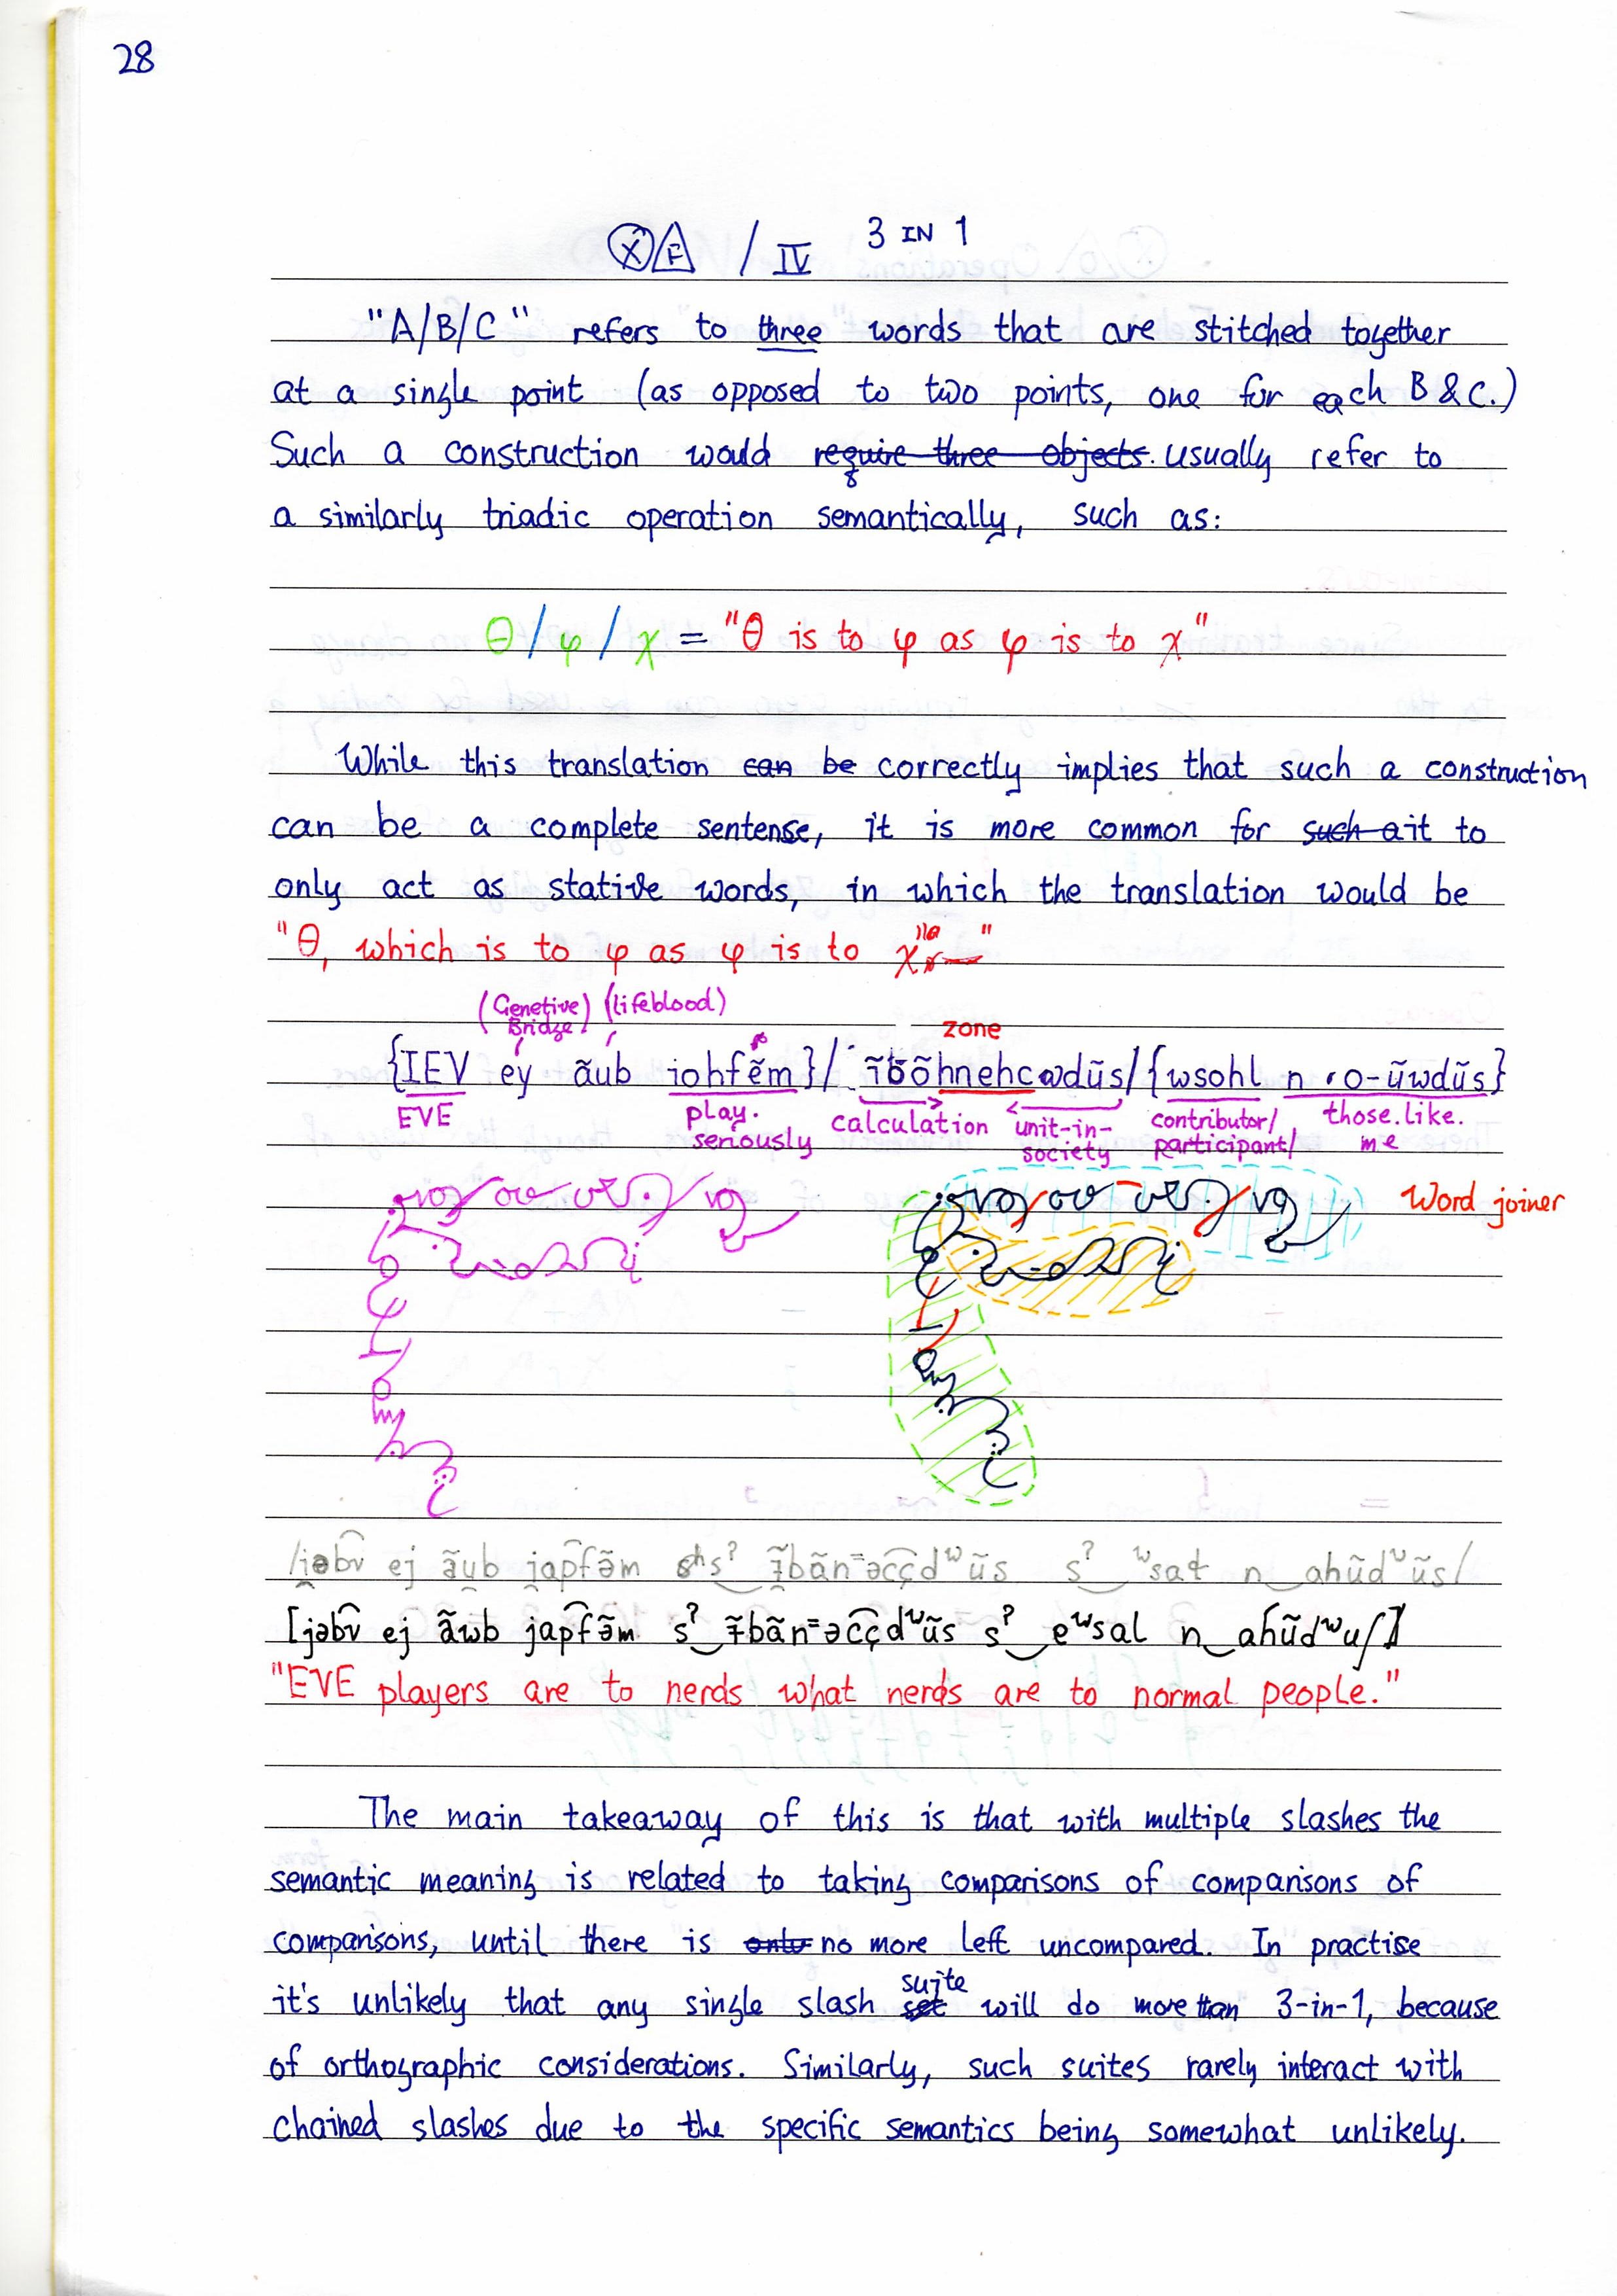 28
3 IN 1
Ⓧ F / IV
"A/B/C" refers to three words that are stitched together
at a single point (as opposed to two points, one for each B & C.)
Such a construction would require three objects. usually refer to
a similarly triadic operation semantically, such as:
θ/φ/χ = "θ is to φ as φ is to χ"
While this translation can be correctly implies that such a construction
can be a complete sentense, it is more common for such a it to
only act as stative words, in which the translation would be
"θ, which is to φ as φ is to χ"
(Genetive Bridge) (lifeblood)
zone
{IEV ey ãub iohfẽm}/ĩbõhnehcwdũs/{wsohl n ro-ũwdũs}
EVE play. seriously calculation unit-in-society contributor/participant/ those.like.me
Word joiner
"EVE players are to nerds what nerds are to normal people."
The main takeaway of this is that with multiple slashes the
semantic meaning is related to taking comparisons of comparisons of
comparisons, until there is only no more left uncompared. In practise
it's unlikely that any single slash set suite will do more tan 3-in-1, because
of orthographic considerations. Similarly, such suites rarely interact with
chained slashes due to the specific semantics being somewhat unlikely.